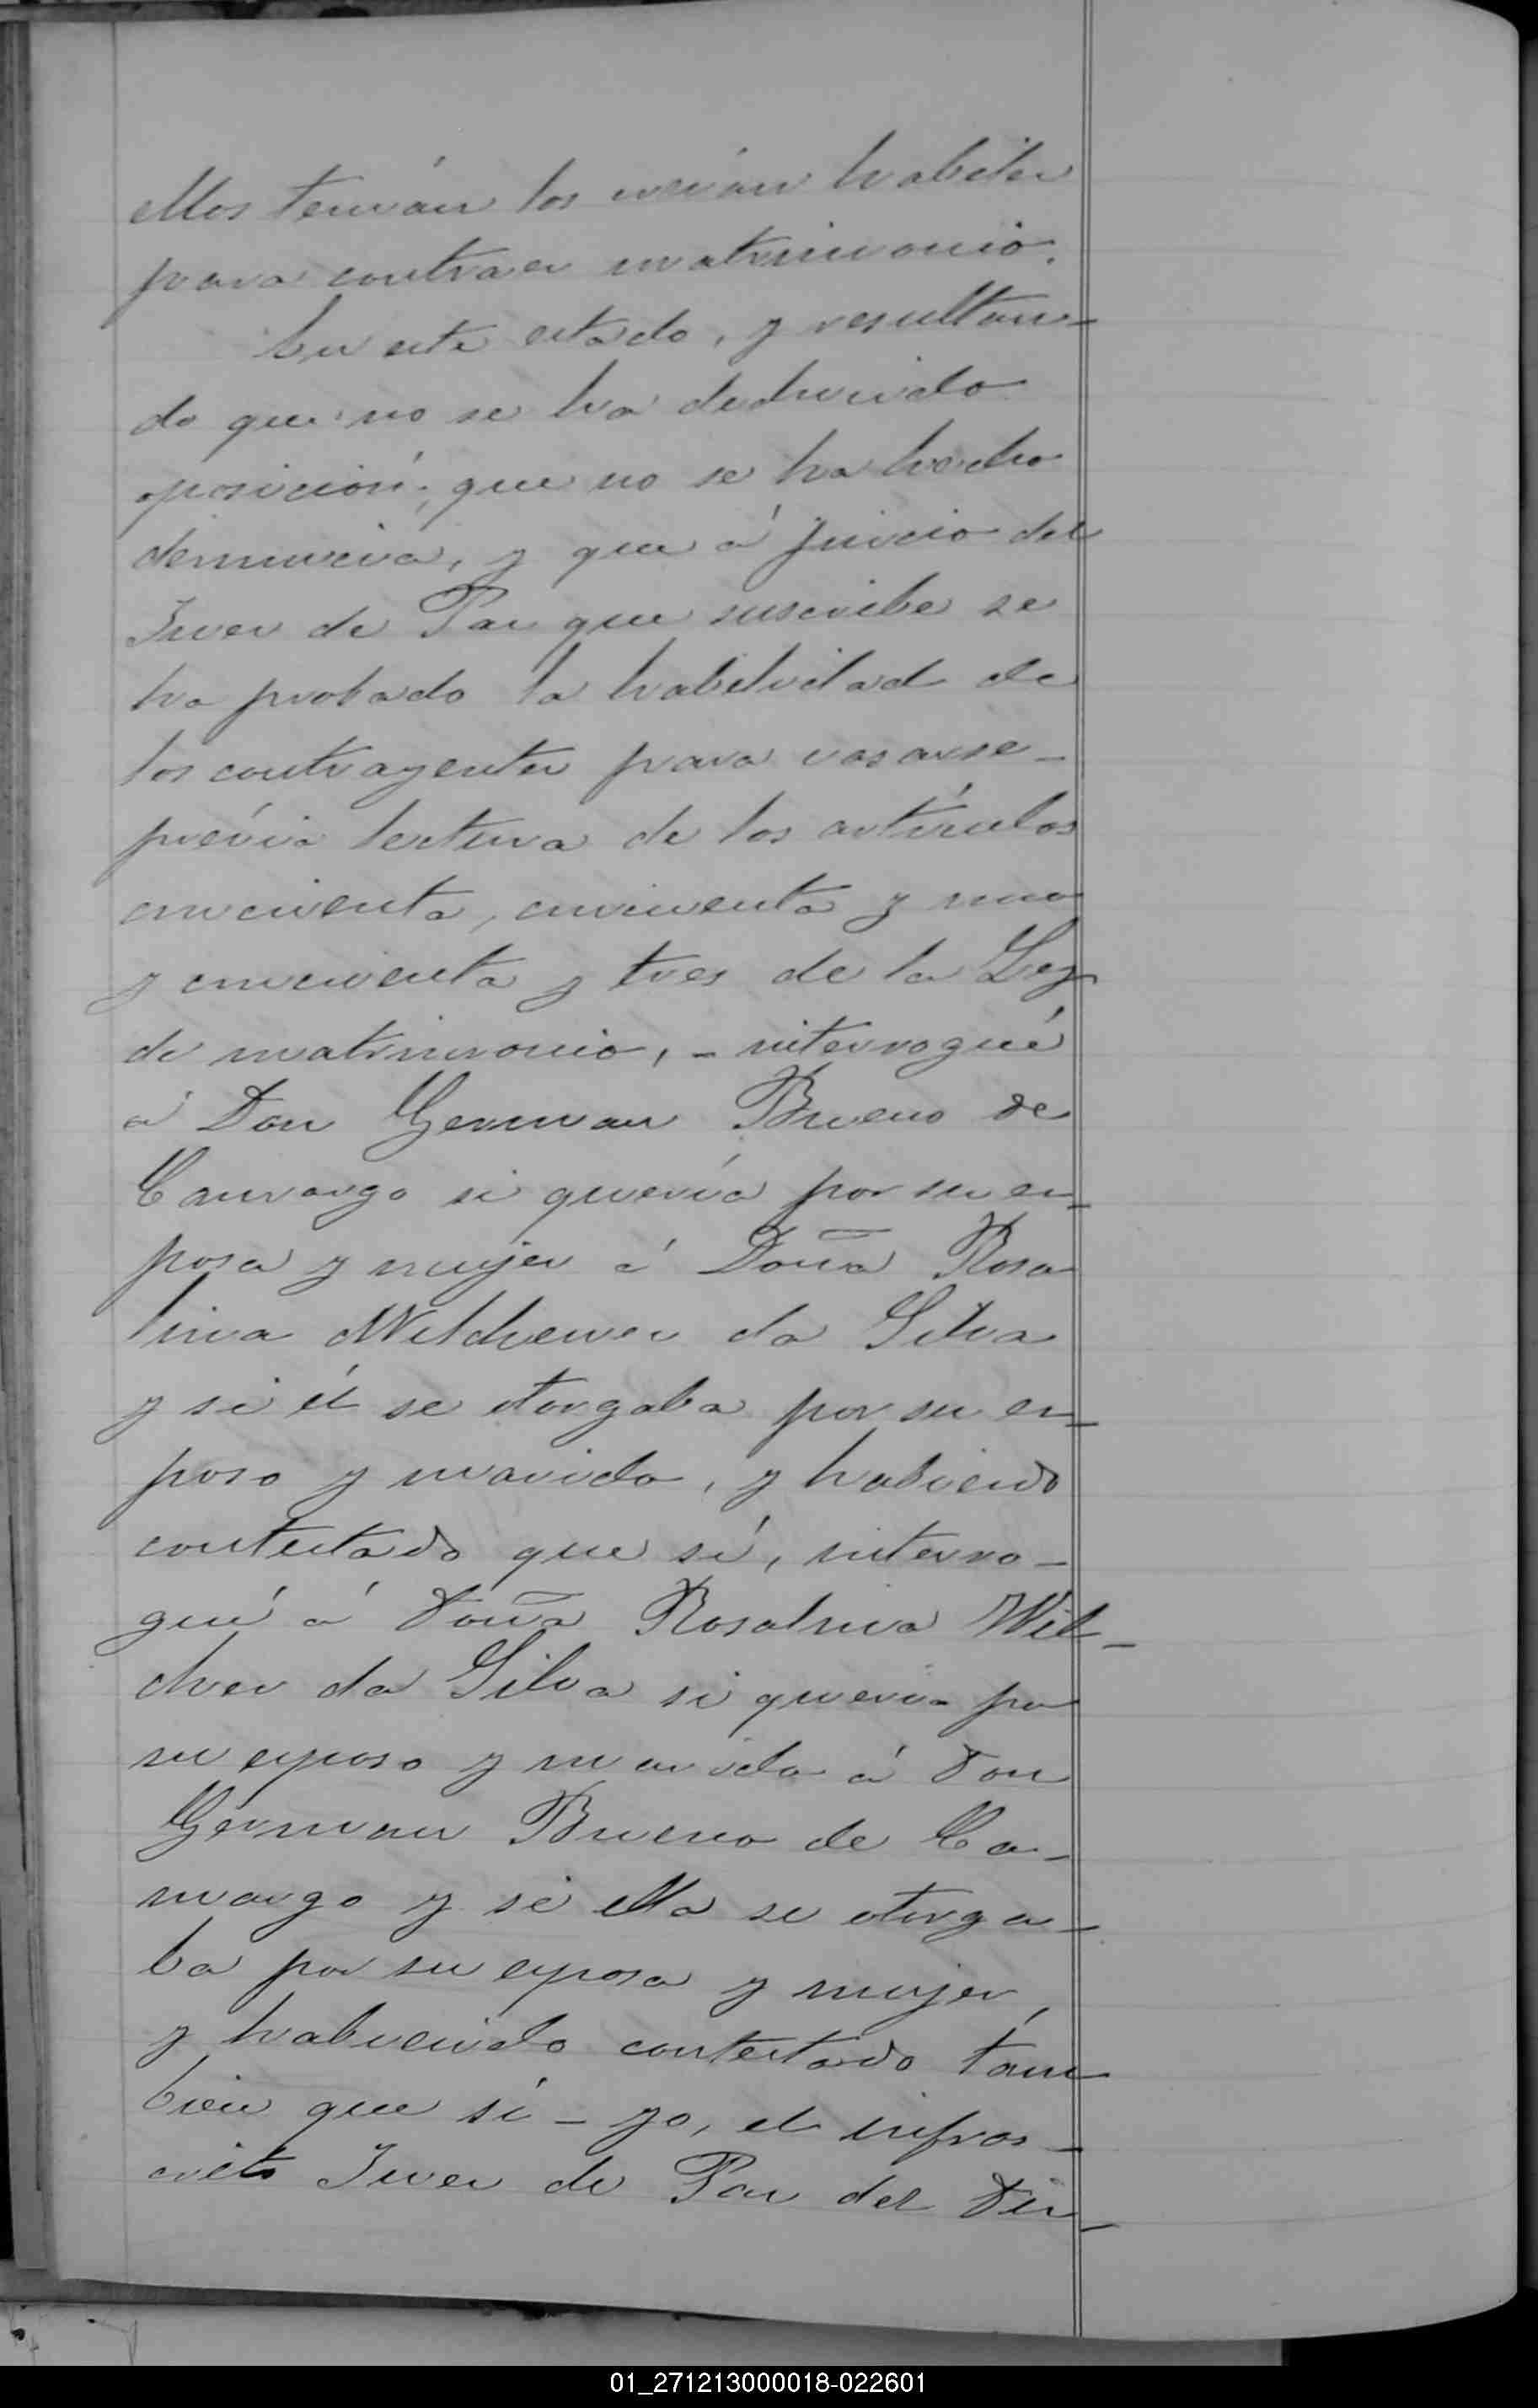 ellos tenían los creían habiles
para contraer matrimonio.
En este estado, y resultan-
do que no se ha deducido
oposición; que no se ha hecho
denuncia, y que á juicio del
Juez de Paz que suscribe se
ha probado la habilidad de
los contrayentes para casarse -
prévia lectura de los artículos
cincuenta, cincuenta y uno
y cincuenta y tres de la Ley
de matrimonio, - interrogué
á Don German Bueno de
Camargo si quería por su es-
posa y mujer á Doña Rosa
lina Wilchever da Silva
y si él se otorgaba por su es-
poso y marido, y habiendo
contestado que sí, interro-
gué á Doña Rosalina Wil-
cher da Silva si queria por
su esposo y marido á Don
German Bueno de Ca-
margo y si ella se otorga-
ba por su esposa y mujer,
y habiendo contestado tam
bien que sí - yo, el infras-
crito Juez de Paz del Dis-
01_271213000018-022601